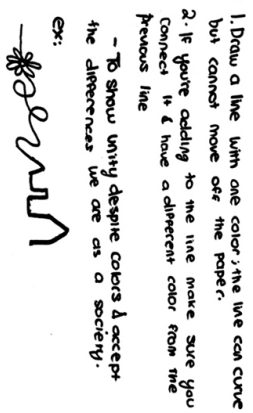 1. Draw a line with one color; the line can curve
but cannot move off the paper.
2. If you're adding to the line make sure you
connect it & have a different color from the
previous line
- To show unity despite colors & accept
the differences we are as a society.
ex: